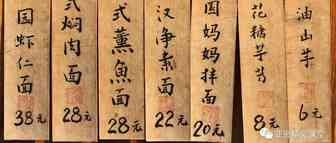 园虾仁面
38元
式焖肉面
28元
式薰魚面
28元
汉净素面
22元
园妈妈拌面
20元
花糖芋苗
8元
油山芋
6元